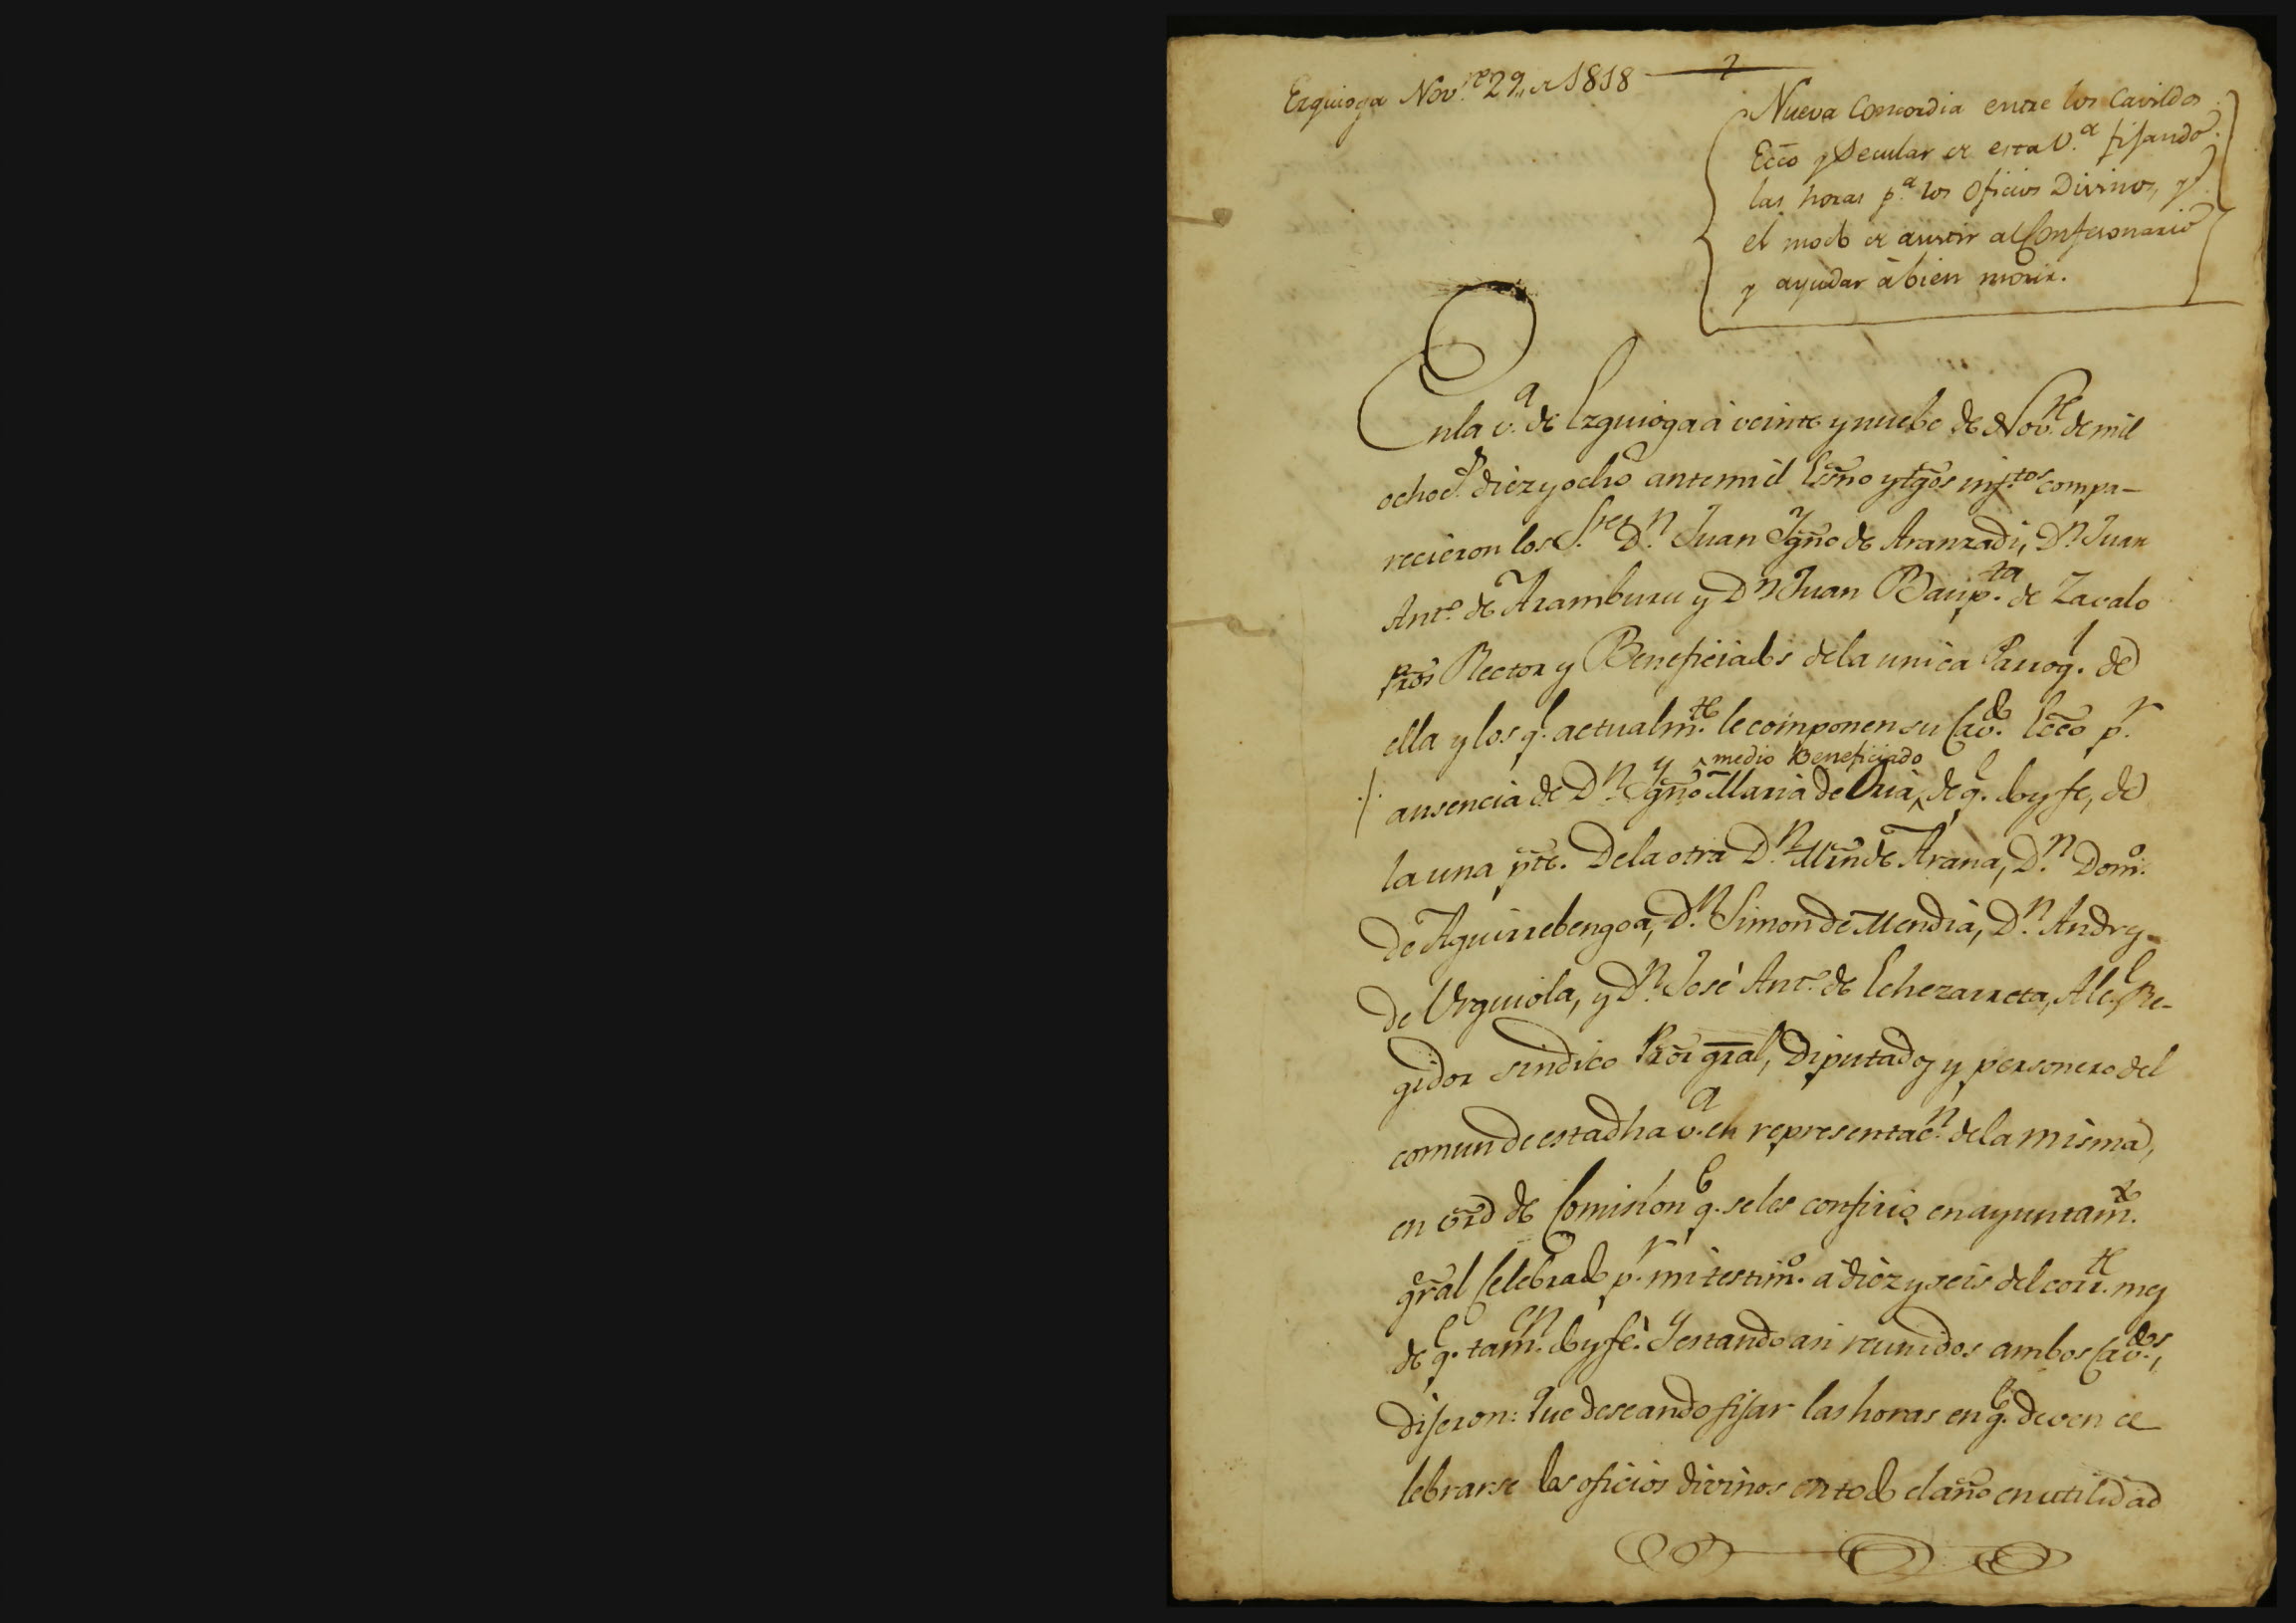 Ezquioga Nov.re 29,, de 1818
Nueva Concordia entre los Cavildos
Ecc̃o y Secular de esta V.a fijando
las horas p.a los Oficios Divinos, y
el modo de asistir al Confesonario
y ayudar à bien morir.
En la v.a de Ezquioga à veinte y nuebe de Nov.re de mil
ochoc.s diez y ocho ante mi el Esc̃no y tg̃os inf.tos compa-
recieron los S.res D.n Juan Ygñ̃o de Aranzadi, D.n Juan
Ant.o de Aramburu y D.n Juan Baup.ta de Zavalo
Pr̃os Rector y Beneficiados de la unica Parroq.l de
ella y los q.e actualm.te le componen su Cav.do Ecc̃o p.r
ausencia de D.n Ygñ̃o Maria de Oria, medio Beneficiado de q.e doy fe, de
la una pt̃e. De la otra D.n Mr̃n de Arana, D.n Dom.o
de Aguirrebengoa, D.n Simon de Mendia, D.n Andres
de Urquiola, y D.n José Ant.o de Echezarreta, Alc.e Re-
gidor sindico Pr̃or gr̃al, Diputados y personero del
comun de esta dha v.a en representac.n de la misma,
en vr̃d de Comision q.e se les confirio en ayuntam.to
gr̃al Celebrado p.r mi testim.o à diez y seis del corr.te mes
de q.e tam.en doy fé. Y estando asi reunidos ambos Cav.dos,
Dijeron: Que deseando fijar las horas en q.e deven ce
lebrarse los oficios divinos en todo el año en utilidad